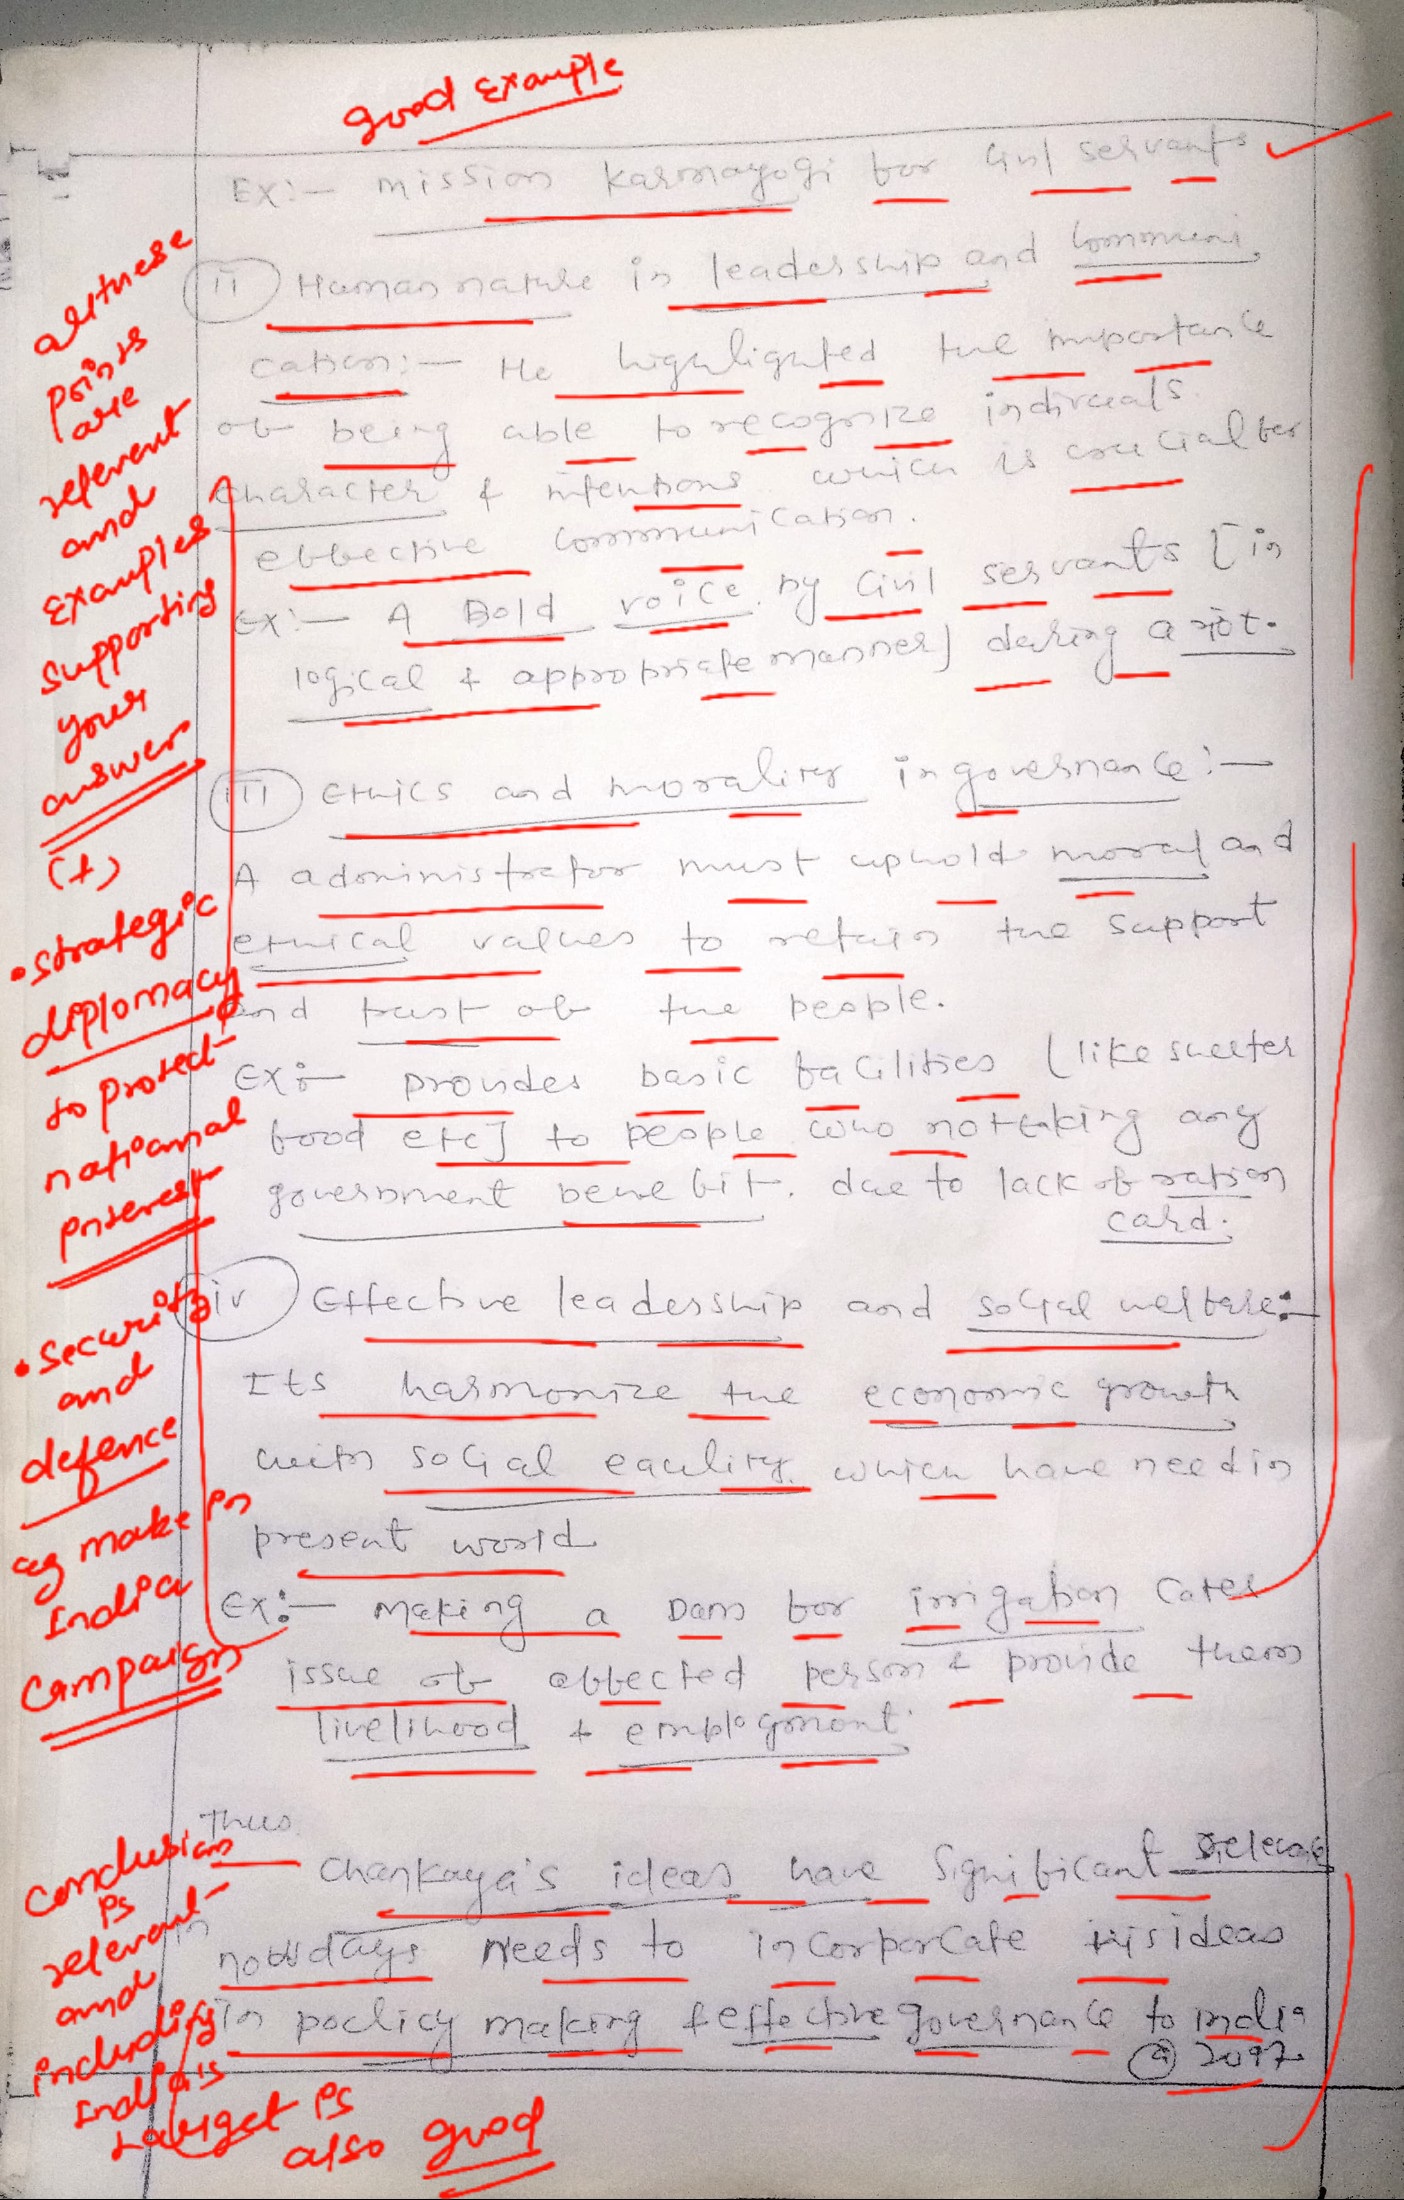 Good Example
Ex:- Mission Karmayogi for Civil servants
(ii) Human nature in leadership and communi
cation:- He highlighted the importance
of being able to recognize indiviuals
character & intentions which is crucial for
effective communication.
Ex:- A Bold voice by Civil servants [in
logical & appropriate manner] during a riot.
(iii) Ethics and morality in governance:-
A administrator must uphold moral and
ethical values to retain the support
and trust of the people.
Ex:- provides basic facilities (like shelter
food etc] to people who not taking any
government benefit. due to lack of ration
card.
(iv) Effective leadership and social welfare:-
Its harmonize the economic growth
with social equlity which have need in
present world
Ex:- Making a Dam for irrigation Cater
issue of affected person & provide them
livelihood & employment.
Thus
Chankaya's ideas have Significant relevance
in
nowdays needs to incorporate his ideas
in poclicy making & effective governance to india
@ 2047.
all these
points
are
relevent
and
examples
supporting
your
answer
(+)
• strategic
diplomacy
to protect
national
interest
• security
and
defence
eg make in
India
Campaign
Conclusion
is
relevant
and
including
India's
target is
also good